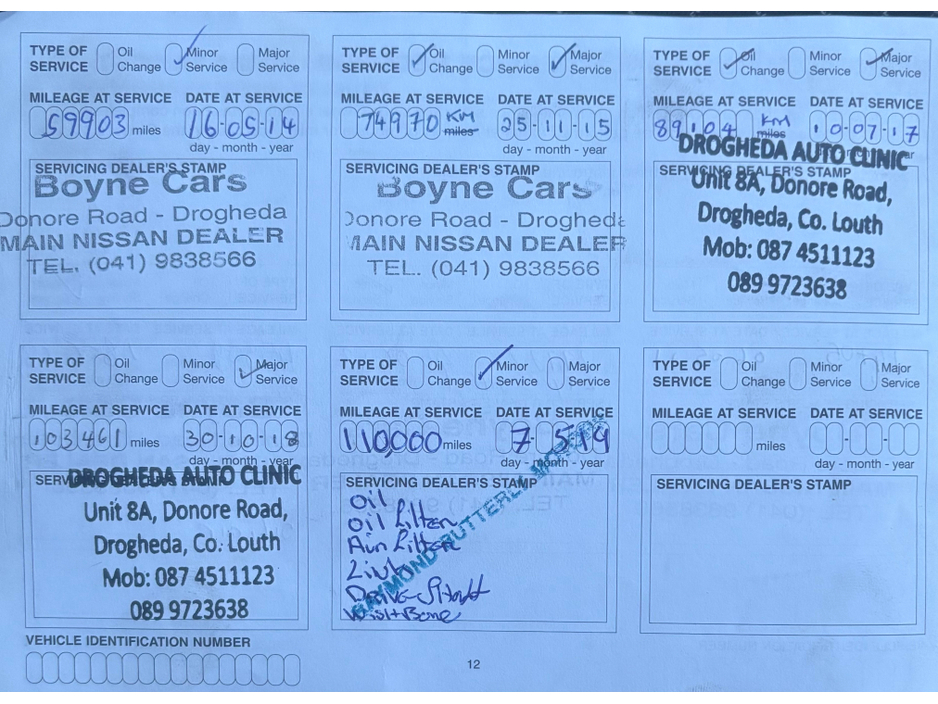 TYPE OF SERVICE Oil Change Minor Service Major Service
MILEAGE AT SERVICE DATE AT SERVICE
59903 miles 16-05-14
day - month - year
SERVICING DEALER'S STAMP
Boyne Cars
Donore Road - Drogheda
MAIN NISSAN DEALER
TEL. (041) 9838566
TYPE OF SERVICE Oil Change Minor Service Major Service
MILEAGE AT SERVICE DATE AT SERVICE
74970 KM miles 25-11-15
day - month - year
SERVICING DEALER'S STAMP
Boyne Cars
Donore Road - Drogheda
MAIN NISSAN DEALER
TEL. (041) 9838566
TYPE OF SERVICE Oil Change Minor Service Major Service
MILEAGE AT SERVICE DATE AT SERVICE
89104 KM miles 10-07-17
SERVICING DEALER'S STAMP
DROGHEDA AUTO CLINIC
Unit 8A, Donore Road,
Drogheda, Co. Louth
Mob: 087 4511123
089 9723638
TYPE OF SERVICE Oil Change Minor Service Major Service
MILEAGE AT SERVICE DATE AT SERVICE
103461 miles 30-10-18
day - month - year
DROGHEDA AUTO CLINIC
Unit 8A, Donore Road,
Drogheda, Co. Louth
Mob: 087 4511123
089 9723638
TYPE OF SERVICE Oil Change Minor Service Major Service
MILEAGE AT SERVICE DATE AT SERVICE
110,000 miles 7-5-19
day - month - year
SERVICING DEALER'S STAMP
Oil
Oil Filter
TYPE OF SERVICE Oil Change Minor Service Major Service
MILEAGE AT SERVICE DATE AT SERVICE
miles
day - month - year
SERVICING DEALER'S STAMP
VEHICLE IDENTIFICATION NUMBER
12